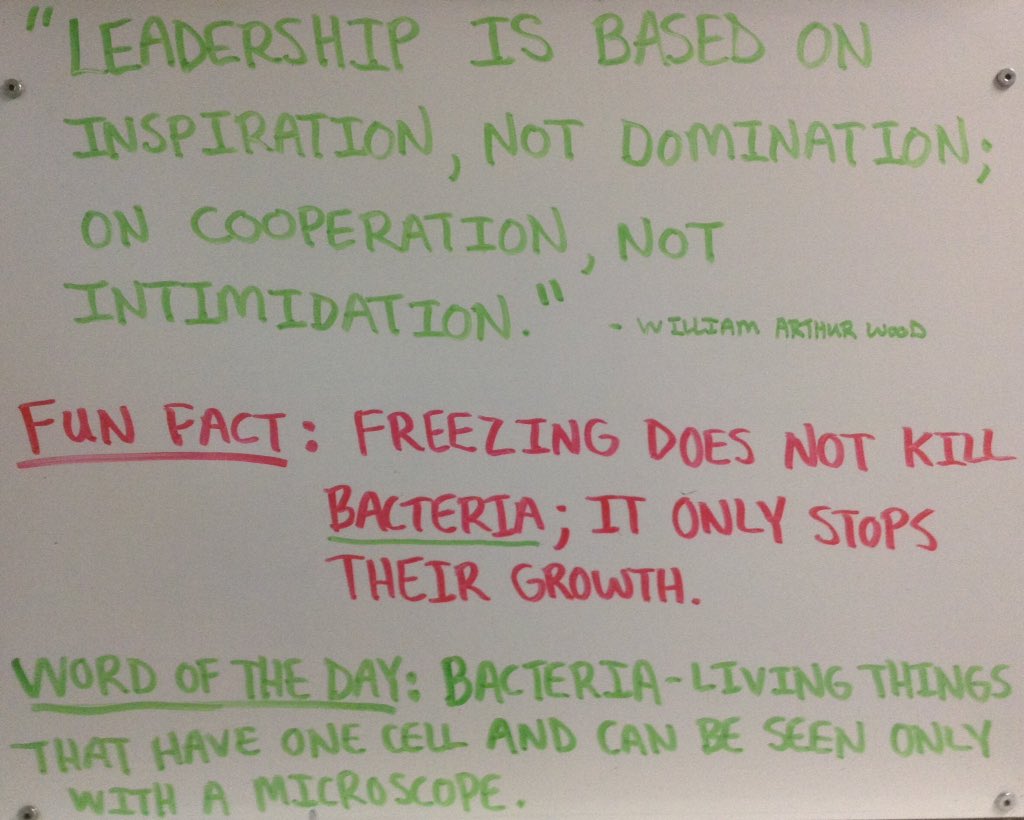 "LEADERSHIP IS BASED ON
INSPIRATION, NOT DOMINATION;
ON COOPERATION, NOT
INTIMIDATION." - WILLIAM ARTHUR WOOD
FUN FACT: FREEZING DOES NOT KILL
BACTERIA; IT ONLY STOPS
THEIR GROWTH.
WORD OF THE DAY: BACTERIA - LIVING THINGS
THAT HAVE ONE CELL AND CAN BE SEEN ONLY
WITH A MICROSCOPE.